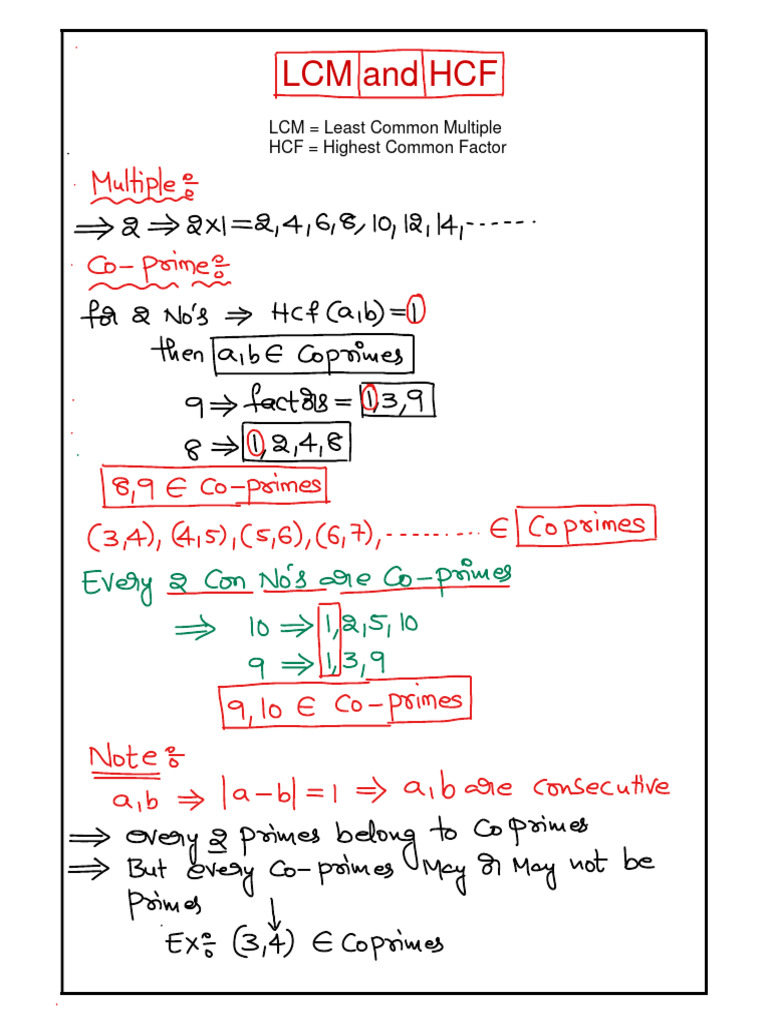 LCM and HCF
LCM = Least Common Multiple
HCF = Highest Common Factor
Multiple:
⇒ 2 ⇒ 2x1 = 2, 4, 6, 8, 10, 12, 14, .......
Co-prime:
for 2 No's ⇒ Hcf (a,b) = 1
then a,b ∈ Coprimes
9 ⇒ factors = 1,3,9
8 ⇒ 1,2,4,8
8,9 ∈ Co-primes
(3,4), (4,5), (5,6), (6,7), .......... ∈ Coprimes
Every 2 Con No's are Co-primes
⇒ 10 ⇒ 1,2,5,10
9 ⇒ 1,3,9
9,10 ∈ Co-primes
Note:
a,b ⇒ |a-b| = 1 ⇒ a,b are consecutive
⇒ every 2 primes belong to Coprimes
⇒ But every Co-primes May or May not be
primes
Ex: (3,4) ∈ Coprimes